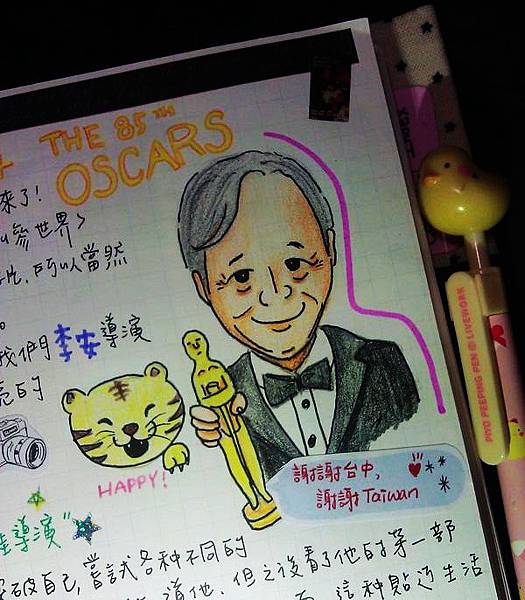 THE 85TH
OSCARS
來了!
世界>
所以當然
我們李安導演
的
HAPPY!
謝謝台中,
謝謝Taiwan
導演"
破自己,嘗試各種不同的
導他.但之後看了他的第一部
這種貼近生活
PIYO PEEPING PEN @ LIVEWORK